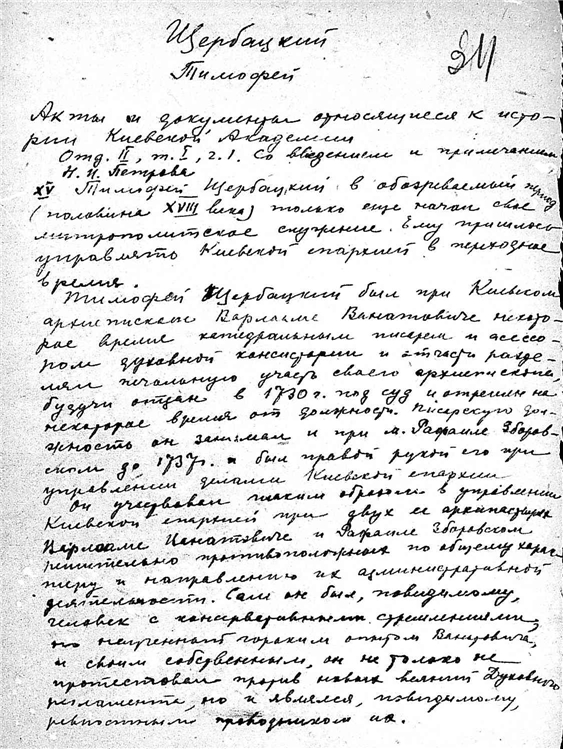 Щербацкий
Тимофей
211
Акты и документы относящиеся к исто-
рии Киевской Академии
Отд. II, т. I, ч. 1. Со введением и примечанием
Н. И. Петрова
XV Тимофей Щербацкий в обозреваемый период
(половина XVIII века) только еще начал свое
митрополитское служение. Ему пришлось
управлять Киевской епархией в переходное
время.
Тимофей Щербацкий был при Киевском
архиепископе Варлааме Ванатовиче некото-
рое время катедральным писарем и асессо-
ром духовной консистории и отчасти разде-
лял печальную участь своего архиепископа,
будучи отдан в 1730 г. под суд и отрешен на
некоторое время от должности. Писарскую дол-
жность он занимал и при м. Рафаиле Заборов-
ском до 1737 г. и был правой рукой его при
управлении делами Киевской епархии
Он участвовал таким образом в управлении
Киевской епархией при двух ее архипастырях
Варлааме Ванатовиче и Рафаиле Заборовском
решительно противоположных по общему харак-
теру и направлению их административной
деятельности. Сам он был, повидимому,
человек с консервативными стремлениями,
но наученный горьким опытом Ванатовича,
и своим собственным, он не только не
протестовал против новых веяний Духовного
регламента, но и являлся, повидимому,
ревностным проводником их.